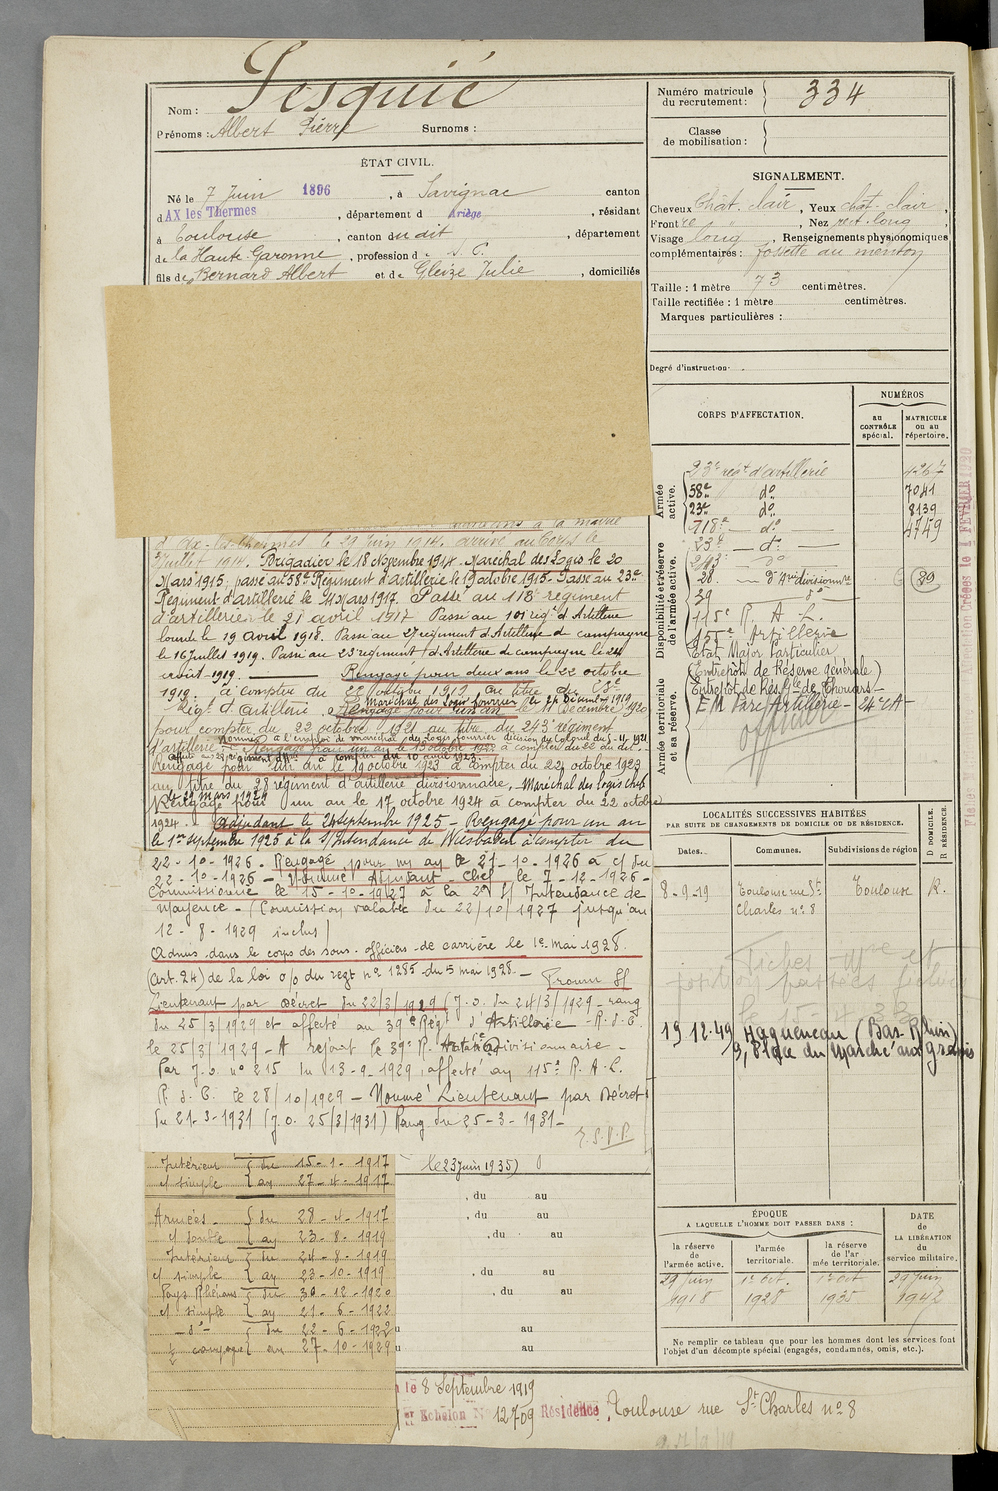 Nom : Pesquié
Prénoms : Albert Pierre Surnoms :
ÉTAT CIVIL.
Né le 7 Juin 1896, à Savignac canton
d AX les Thermes, département d Ariège, résidant
à Toulouse, canton du dit, département
de la Haute-Garonne, profession d S. C.
fils de Bernard Albert et de Gleize Julie, domiciliés
à la mairie
d'Ax-les-Thermes le 29 Juin 1914. arrivé au Corps le
Juillet 1914. Brigadier le 18 Novembre 1914. Maréchal des Logis le 20
Mars 1915, passé au 58e Régiment d'artillerie le 19 octobre 1915. Passé au 23e
Régiment d'artillerie le 11 Mars 1917. Passé au 118 régiment
d'artillerie le 21 avril 1917 Passé au 101 rég. d'Artillerie
lourde le 19 avril 1918. Passé au 27 régiment d'Artillerie de campagne
le 16 Juillet 1919. Passé au 23 régiment d'Artillerie de campagne le 24
août 1919. Rengagé pour deux ans le 22 octobre
1919. à compter du 22 octobre 1919 au titre du 23e
Maréchal des Logis fourrier le 21 Décembre 1919
Régt d'artillerie. Rengagé pour un an le 11 Décembre 1920
pour compter du 22 octobre 1921 au titre du 243e régiment
Nommé à l'emploi de maréchal des logis fourrier décision du Colonel du 5-11-1921
d'artillerie. Rengagé pour un an le 13 octobre 1922 à compter du 22 ou dit.
Affecté au 28 régiment d'Art. à compter du 10 août 1923.
Rengagé pour un an le 19 octobre 1923 à compter du 22 octobre 1923
au titre du 28 régiment d'artillerie divisionnaire, Maréchal des Logis chef
le 29 Mars 1924
Rengagé pour un an le 17 octobre 1924 à compter du 22 octobre
1924. Adjudant le 24 septembre 1925 - Rengagé pour un an
le 1er septembre 1925 à la S/Intendance de Wiesbaden à compter du
22-10-1926. Rengagé pour un an le 21-10-1926 à c/ du
22-10-1926 - Nommé Adjudant-Chef le 7-12-1926 -
Commissionné le 15-10-1927 à la 2e S/ Intendance de
Mayence - (Commission valable du 22/10/1927 jusqu'au
12-8-1929 inclus)
Admis dans le corps des sous-officiers de carrière le 1er mai 1928.
(Art. 24) de la loi o/o du regt n° 1285 du 5 mai 1928. - Promu S/
Lieutenant par Décret du 22/3/1929 (J.O. du 24/3/1929 - rang
du 25/3/1929 et affecté au 39e Rég. d'Artillerie - R.d.C.
le 25/3/1929 - A rejoint le 39e R. Artie Divisionnaire -
Par J.O. n° 215 du 13-9-1929, affecté au 115e R.A.L.
R.d.C. le 28/10/1929 - Nommé Lieutenant par Décret
du 21-3-1931 (J.O. 25/3/1931) Rang du 25-3-1931 -
T.S.V.P.
Intérieur du 15-1-1917
c/ simple au 27-4-1917
le 23 Juin 1935)
Armées du 28-4-1917
c/ double au 23-8-1919
Intérieur du 24-8-1919
c/ simple au 23-10-1919
Pays Rhénans du 30-12-1920
c/ simple au 21-6-1922
- d° - du 22-6-1922
½ campagne au 27-10-1929
, du au
, du au
, du au
, du au
, du au
au
au
le 8 Septembre 1919
er Echelon N° 12709 Résidence, Toulouse rue St Charles n° 8
Numéro matricule du recrutement : 334
Classe de mobilisation :
SIGNALEMENT.
Cheveux Chat. clair, Yeux chat. clair,
Front, Nez rect. long,
Visage long, Renseignements physionomiques
complémentaires : fossette au menton
Taille : 1 mètre 73 centimètres.
Taille rectifiée : 1 mètre centimètres.
Marques particulières :
Degré d'instruction
CORPS D'AFFECTATION.
NUMÉROS
au CONTRÔLE spécial.
MATRICULE ou au répertoire.
Armée active.
Disponibilité et réserve de l'armée active.
Armée territoriale et sa réserve.
23e regt d'artillerie 4267
58e d° 7041
23e d° 8139
118e d° 4759
234 d°
243e d°
28. d° Arie divisionnre 89
39 d°
115e R. A. L.
155e Artillerie
Etat Major Particulier
(Entrepôt de Réserve Générale)
Entrepôt de Resve Gle de Thouars
EM Parc Artillerie - 24e CA
officier
LOCALITÉS SUCCESSIVES HABITÉES
PAR SUITE DE CHANGEMENTS DE DOMICILE OU DE RÉSIDENCE.
Dates. Communes. Subdivisions de région D DOMICILE. R RÉSIDENCE.
8-9-19 Toulouse rue St Charles n° 8 Toulouse R.
Fiches et
position passées fiches
le 15-
19.12.49 Haguenau (Bas-Rhin)
9, Place du Marché aux grains
ÉPOQUE
A LAQUELLE L'HOMME DOIT PASSER DANS :
DATE de LA LIBÉRATION du service militaire.
la réserve de l'armée active.
l'armée territoriale.
la réserve de l'armée territoriale.
29 Juin 1918
1er Oct. 1928
1er Oct 1935
29 Juin 1942
Ne remplir ce tableau que pour les hommes dont les services font
l'objet d'un décompte spécial (engagés, condamnés, omis, etc.).